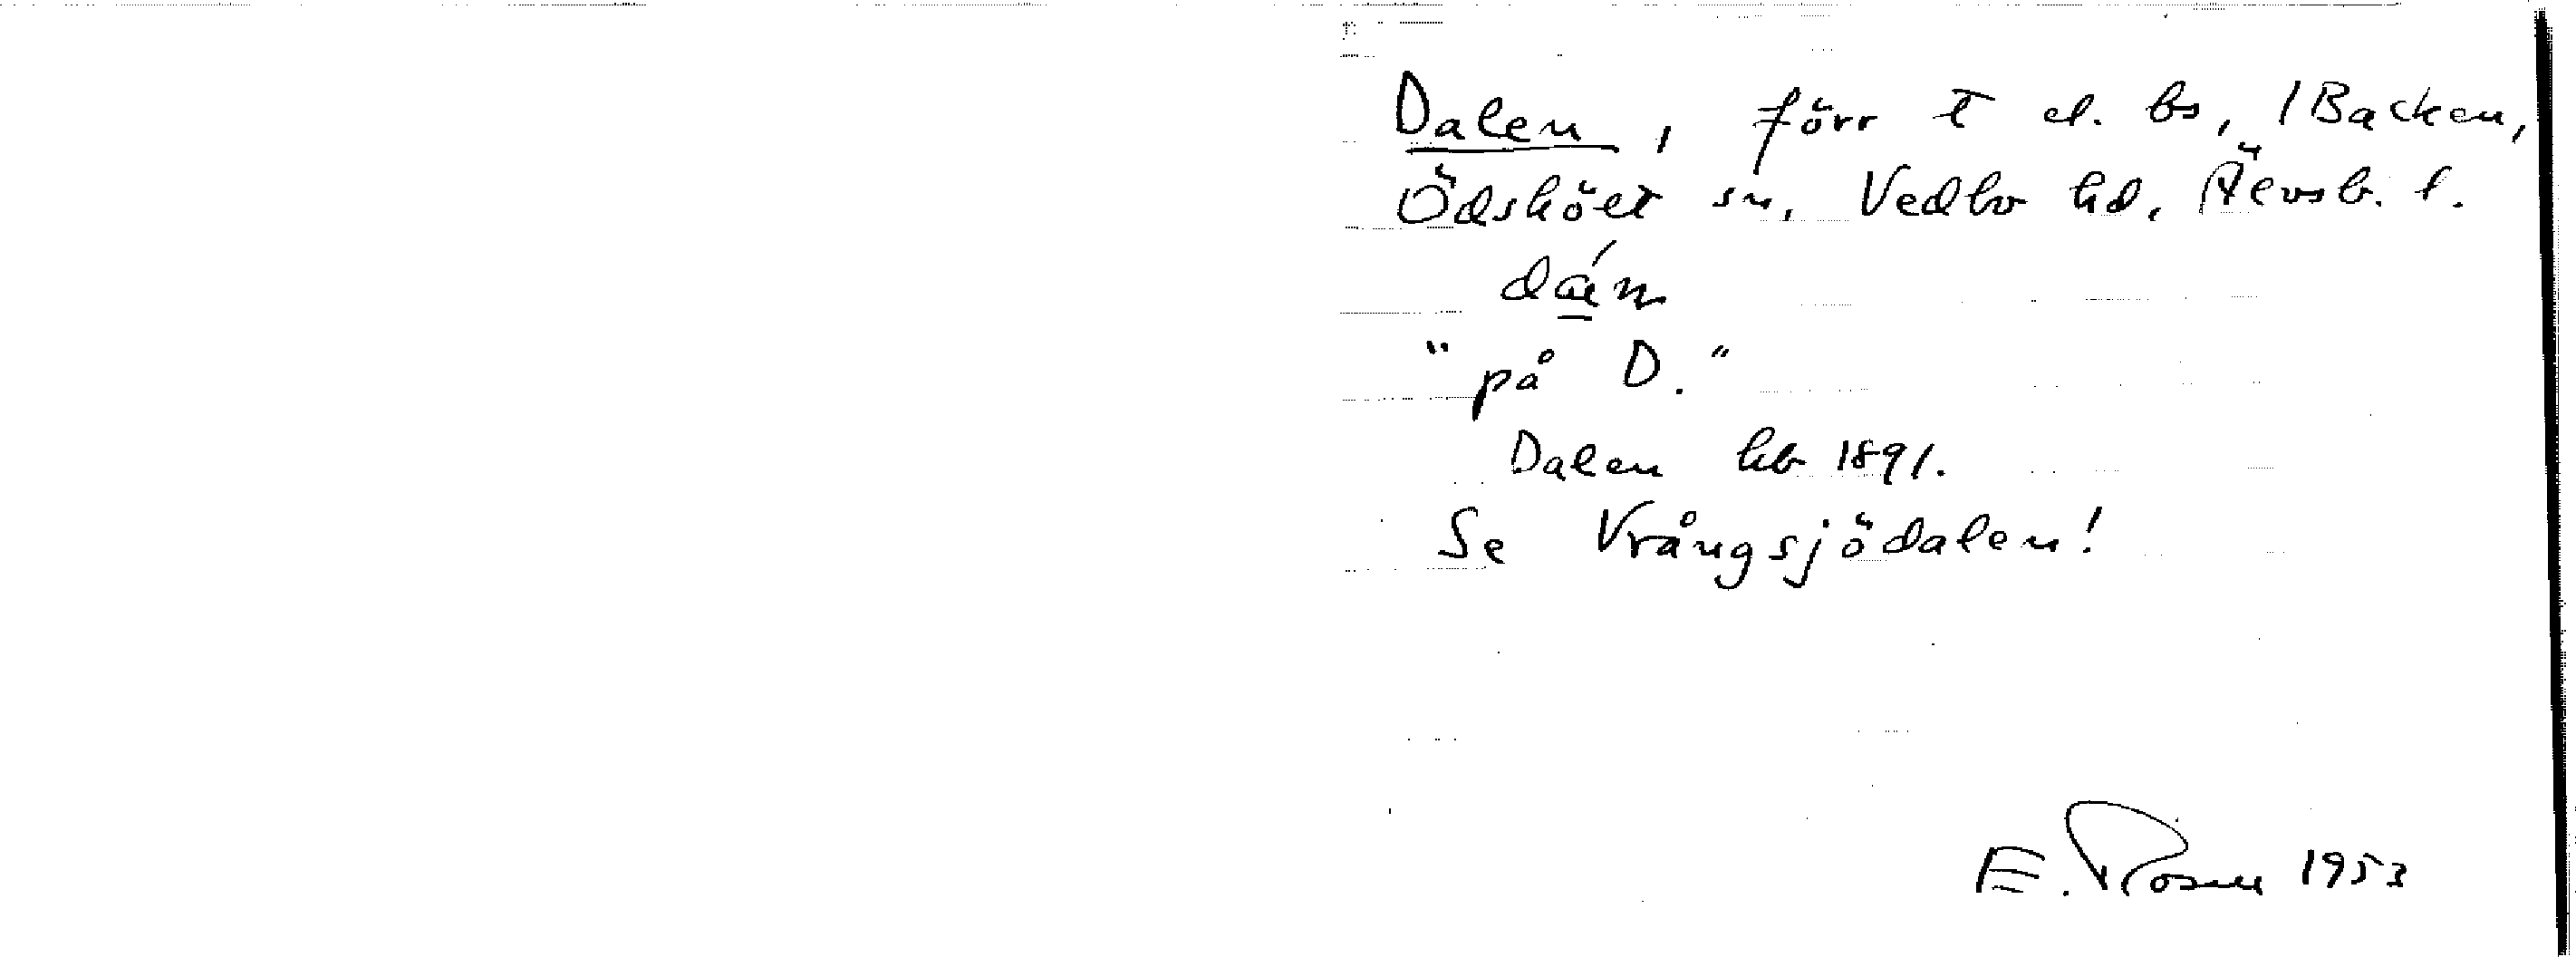 Dalen, förr t el. bs, 1 Backen,
Ödskölt sn, Vedbo hd, Älvsb. l.
dáɳ
"på D."
Dalen hb 1891.
Se Vrångsjödalen!
E. Rosell 1953